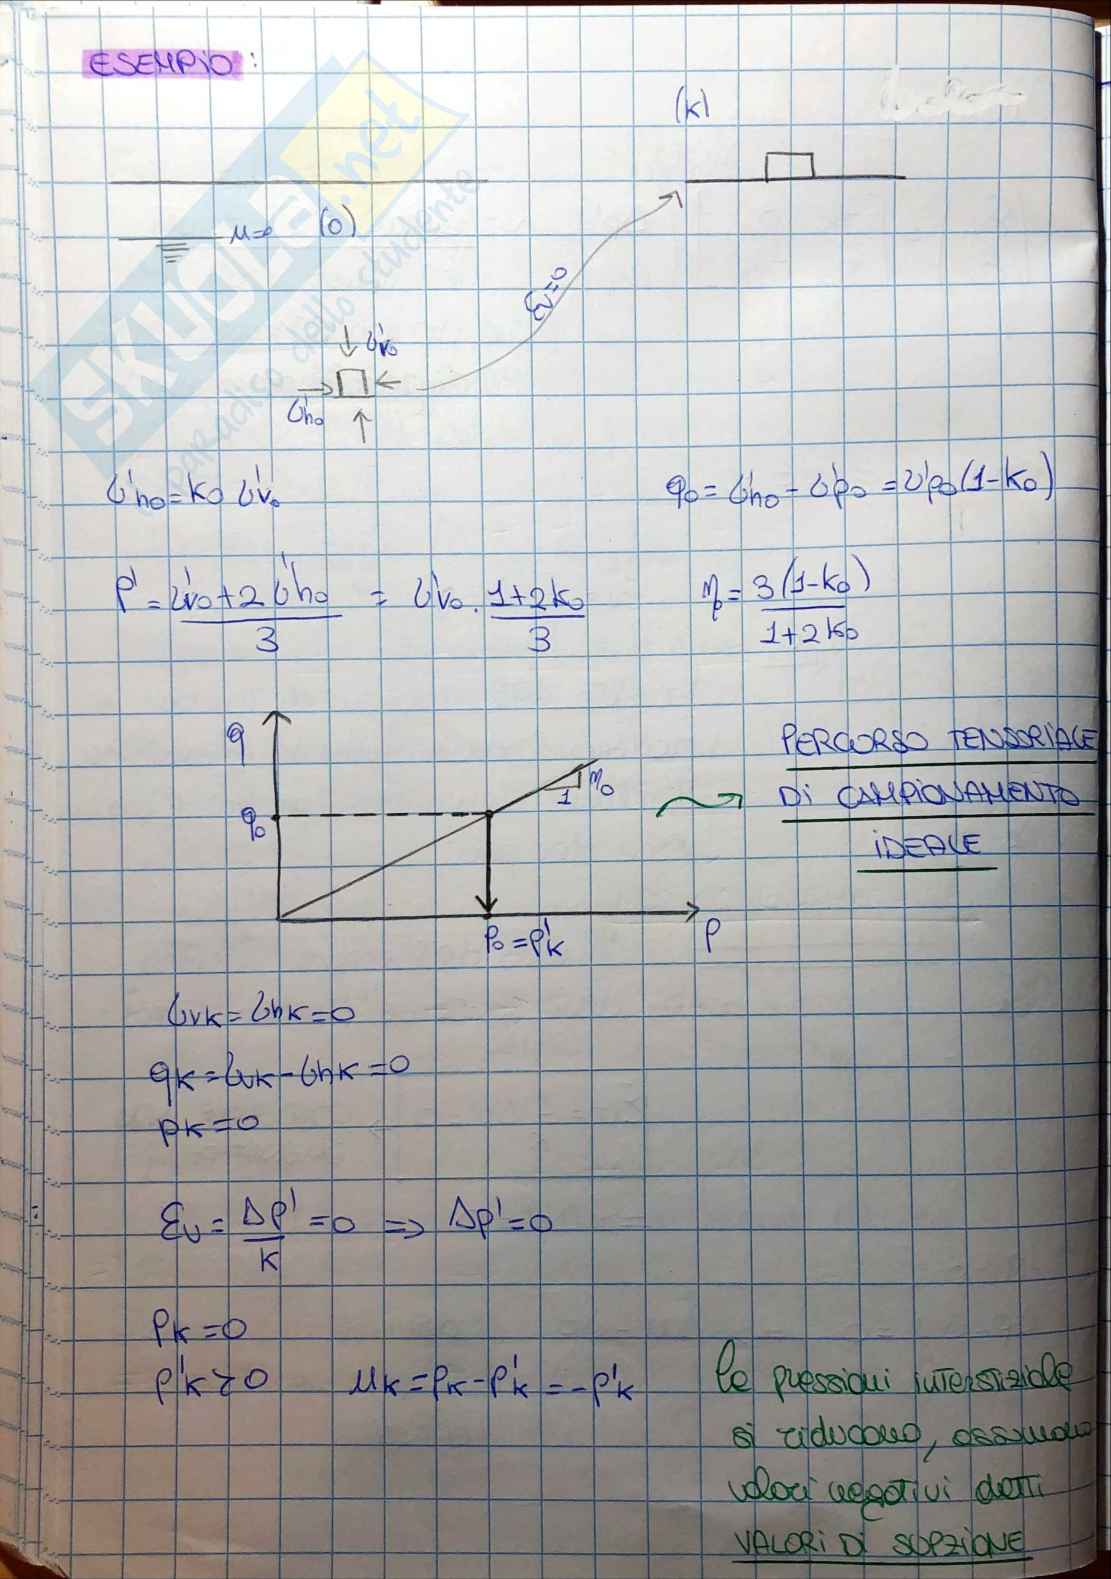 ESEMPIO:
(k)
u=0 (0)
εv=0
σ'v0
σ'h0
σ'h0 = k0 σ'v0
q0 = σ'h0 - σ'p0 = σ'p0 (1-k0)
p' = σ'v0 + 2σ'h0 / 3 = σ'v0 · 1+2k0 / 3
η = 3(1-k0) / 1+2k0
q
q0
1 η0
p0 = p'k
p
PERCORSO TENSORIALE
DI CAMPIONAMENTO
IDEALE
σvk = σhk = 0
qk = σvk - σhk = 0
pk = 0
εv = Δp' / k = 0 => Δp' = 0
pk = 0
p'k > 0 uk = pk - p'k = -p'k
le pressioni interstiziale
si riducono, assumono
valori negativi detti
VALORI DI SUPZIONE
SKUOLA.net
paradiso dello studente